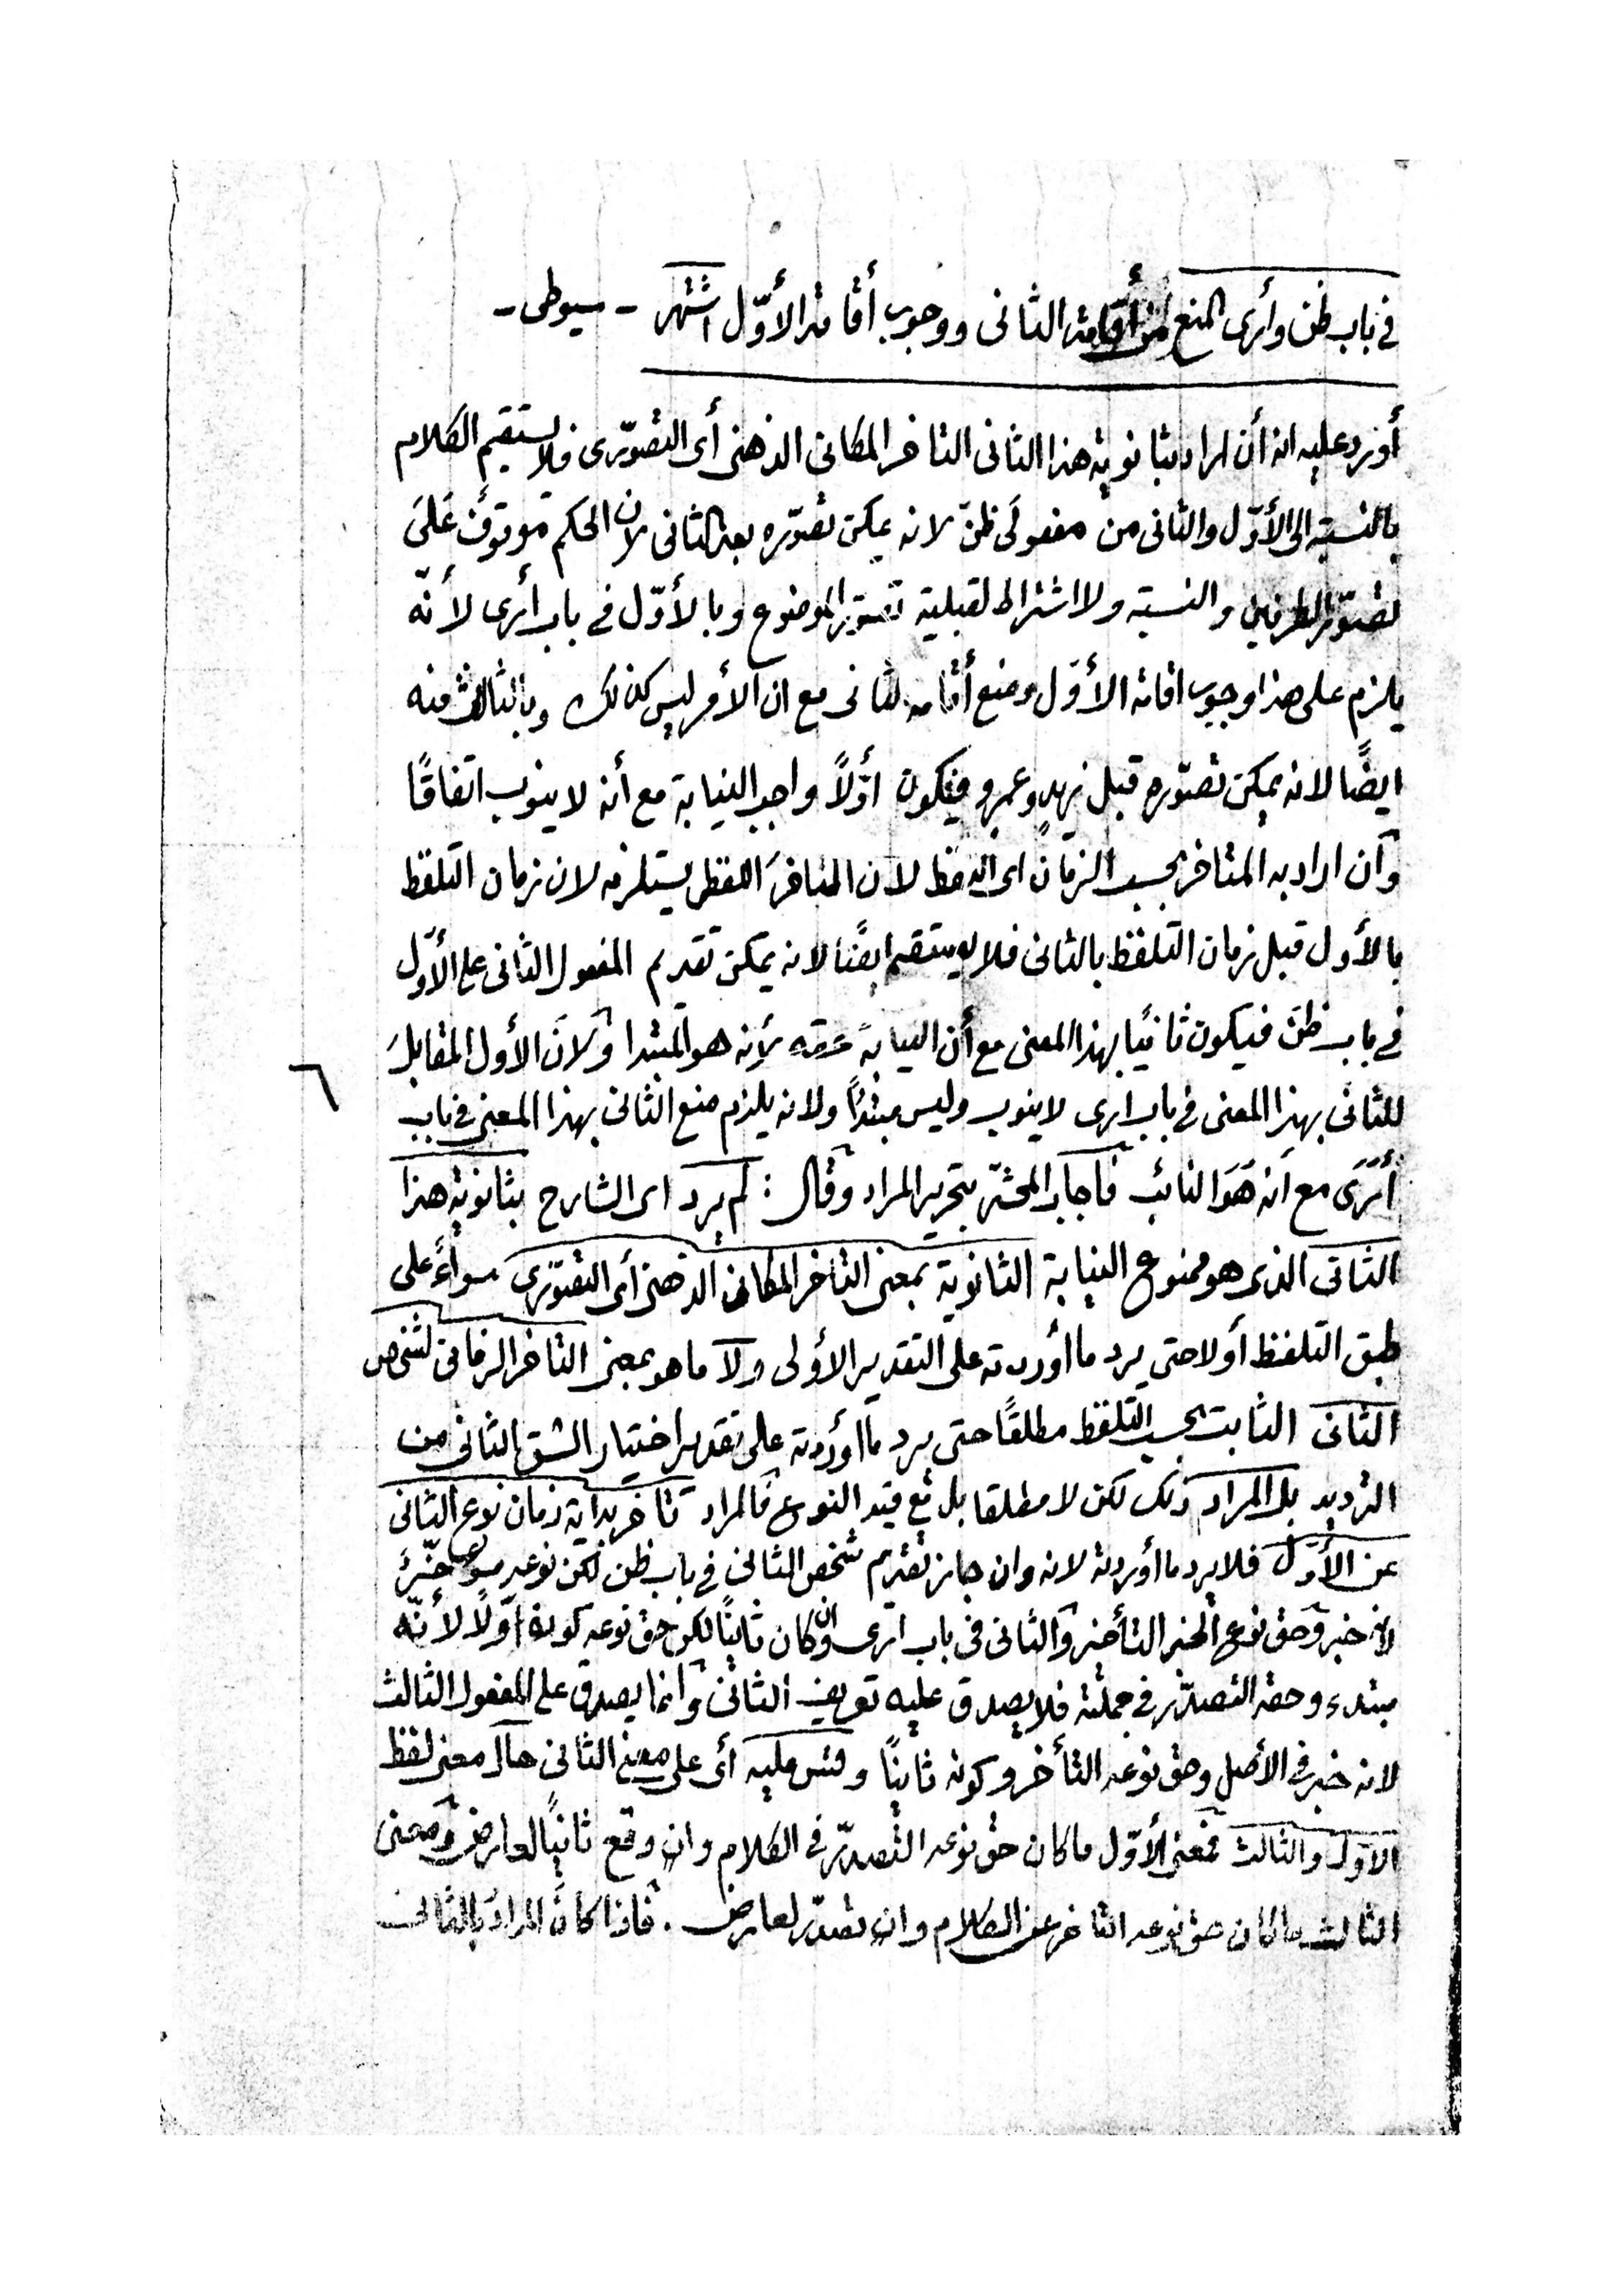 في باب ظن وأرى المنع من أقامة الثانى ووجوب أقامة الأوّل اشتهر - سيوطى -
أورد عليه انه أن اراد بثانوية هذا الثانى التاخر المكانى الذهنى أى التصوّرى فلا يستقيم الكلام
بالنسبة الى الأوّل والثانى من مفعولَى ظنّ لانه يمكن تصوّره بعد الثانى لان الحكم موقوف عَلىَ
تصوّر الطرفين والنسبة ولا اشتراط لقبلية تصوّر الموضوع وبالأوّل في باب أرى لأنّه
يلزم على هذا وجوب اقامة الأوّل ومنع أقامة الثانى مع ان الأمر ليس كذلك وبالثالث منه
ايضًا لانه يمكن تصوّره قبل زيدٍ وعمرٍو فيكون اوّلاً واجب النيابة مع أنه لا ينوب اتفاقًا
وان اراد به المتاخر بحسب الزمان اى التلفظ لان المتاخرَ اللفظى يستلزمه لان زمان التلفظ
بالأول قبل زمان التلفظ بالثانى فلا يستقيم ايضًا لانه يمكن تقديم المفعول الثانى على الأوّل
في باب ظنّ فيكون ثانيًا بهذا المعنى مع أن النيابة حقه لأنه هو المبتدا ولانَ الأول المقابلَ
للثانى بهذا المعنى في باب ارى لا ينوب وليس مبتدًا ولانه يلزم منع الثانى بهذا المعنى في باب
أَرَى مع انه هَوَ النائب فأجاب المحشّى بتحرير المراد وقال : لم يرد اى الشارح بثانوية هذا
الثانى الذى هو ممنوع النيابة الثانوية بمعنى التاخر المكانى الذهنى أى التصوّرى سواءً على
طبق التلفظ أو لا حتى يرد ما أوردته على التقدير الأولى ولا ما هو بمعنى التاخر الزمانى لشخص
الثانى الثابت بحسب التلفظ مطلقًا حتى يرد ما أوردته على تقدير اختيار الشق الثانى من
الترديد بل المراد ذلك لكن لا مطلقا بل مع قيد النوع فالمراد تاخر بداية زمان نوع الثانى
عن الأوّل فلا يرد ما أوردته لانه وان جاز تقديم شخص الثانى في باب ظن لكن نوعه
لانه خبر وحق نوع الخبر التأخير والثانى فى باب ارى وان كان ثانيًا لكن حق نوعه كونه اوّلًا لأنّه
مبتدء وحقه التصدّر في جملته فلا يصدق عليه تعريف الثانى وانما يصدق على المفعول الثالث
لانه خبر في الأصل وحق نوعه التأخر وكونه ثانيًا وقس عليه أى على معنى الثانى حال معنى لفظ
الاول والثالث فمعنى الأوّل ما كان حق نوعه التصدّر في الكلام وان وقع ثانيًا لعارض ومعنى
الثالث ما كان حق نوعه التاخر عن الكلام وان تصدّر لعارض . فاذا كانَ المرادُ بالثانى
٦